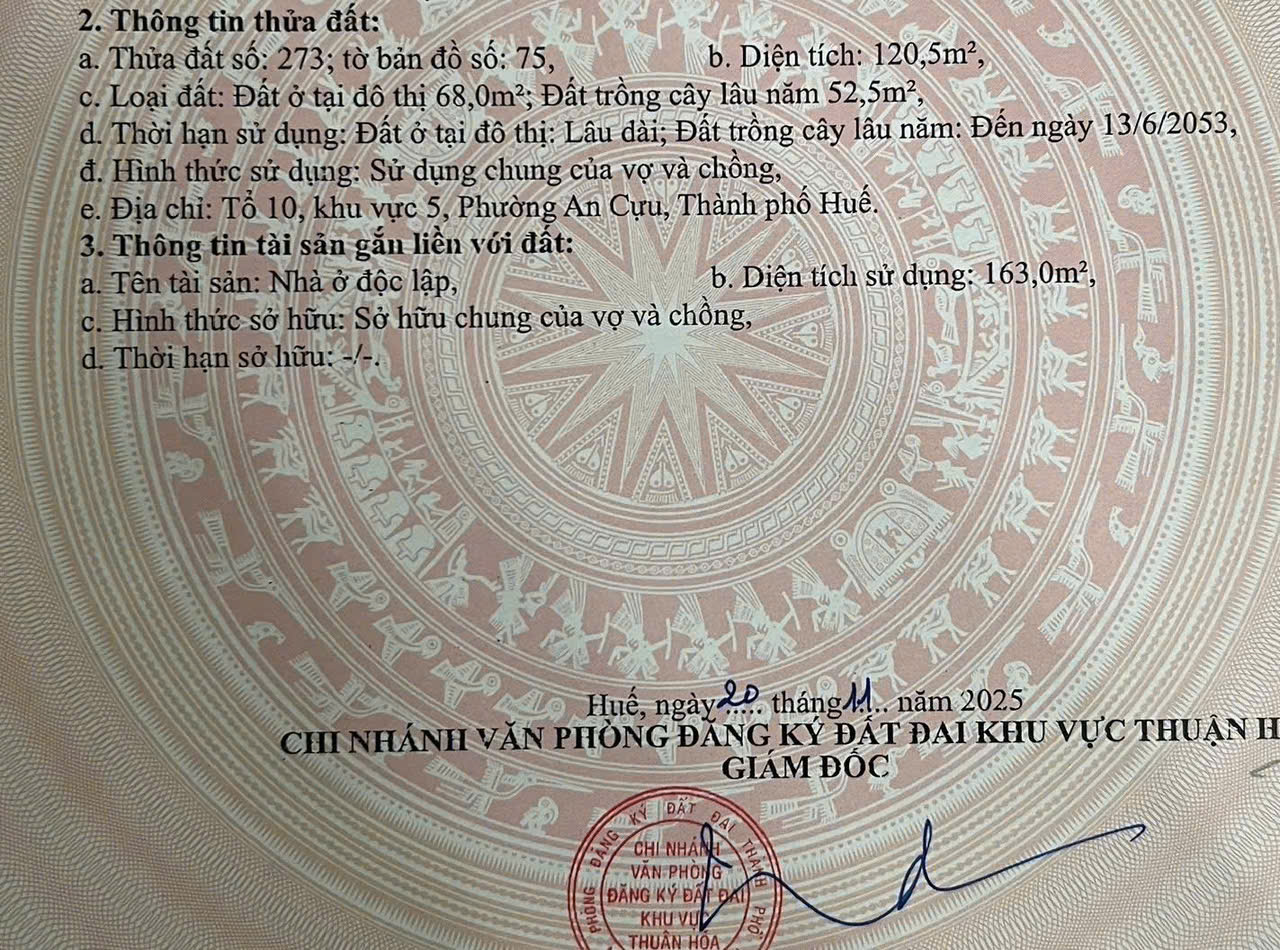 2. Thông tin thửa đất:
a. Thửa đất số: 273; tờ bản đồ số: 75, b. Diện tích: 120,5m²,
c. Loại đất: Đất ở tại đô thị 68,0m²; Đất trồng cây lâu năm 52,5m²,
d. Thời hạn sử dụng: Đất ở tại đô thị: Lâu dài; Đất trồng cây lâu năm: Đến ngày 13/6/2053,
đ. Hình thức sử dụng: Sử dụng chung của vợ và chồng,
e. Địa chỉ: Tổ 10, khu vực 5, Phường An Cựu, Thành phố Huế.
3. Thông tin tài sản gắn liền với đất:
a. Tên tài sản: Nhà ở độc lập, b. Diện tích sử dụng: 163,0m²,
c. Hình thức sở hữu: Sở hữu chung của vợ và chồng,
d. Thời hạn sở hữu: -/-.
Huế, ngày 20 tháng 11 năm 2025
CHI NHÁNH VĂN PHÒNG ĐĂNG KÝ ĐẤT ĐAI KHU VỰC THUẬN H
GIÁM ĐỐC
PHÒNG ĐĂNG KÝ ĐẤT ĐAI THÀNH PHỐ
CHI NHÁNH
VĂN PHÒNG
ĐĂNG KÝ ĐẤT ĐAI
KHU VỰC
THUẬN HÓA